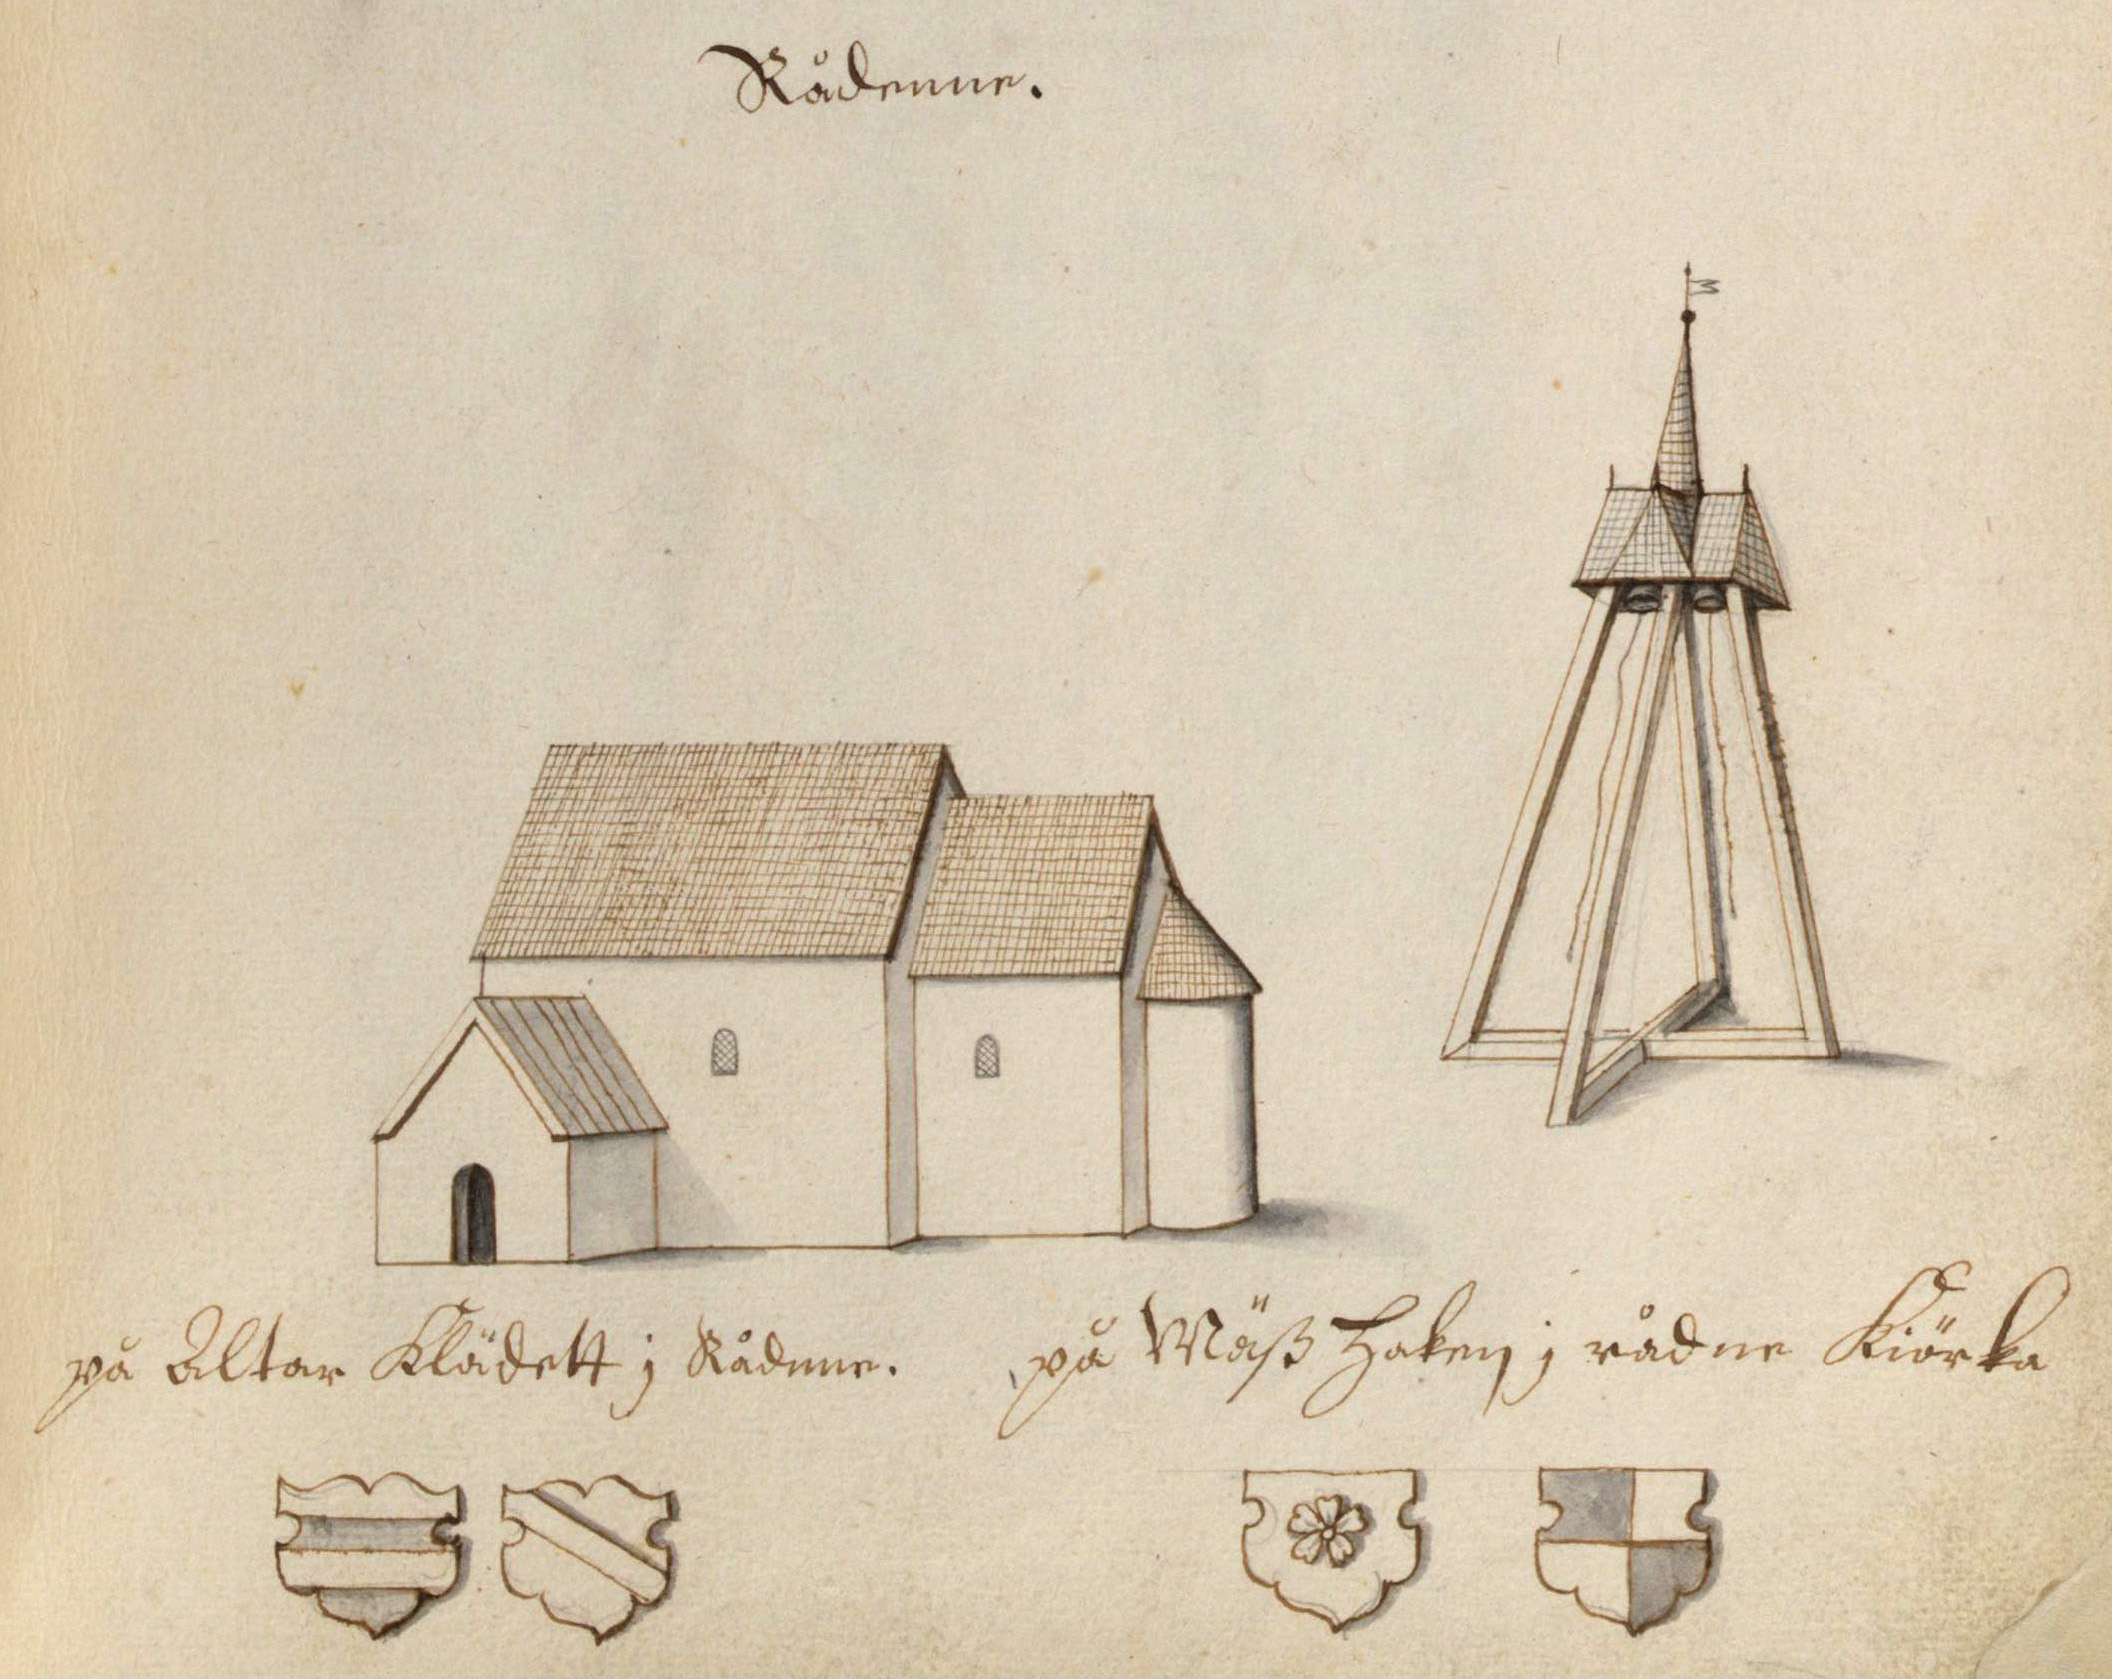 Rådenne.
på Altar Klädett j Rådnne.
på Mäß Haken j rådne Kiörka